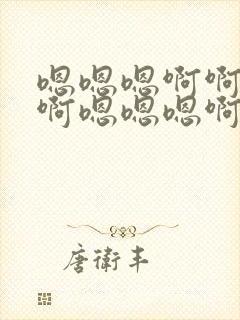 嗯嗯嗯啊啊
啊嗯嗯嗯啊
唐衛丰